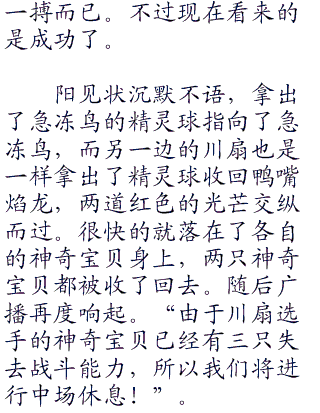 一搏而已。不过现在看来的
是成功了。
阳见状沉默不语，拿出
了急冻鸟的精灵球指向了急
冻鸟，而另一边的川扇也是
一样拿出了精灵球收回鸭嘴
焰龙，两道红色的光芒交纵
而过。很快的就落在了各自
的神奇宝贝身上，两只神奇
宝贝都被收了回去。随后广
播再度响起。“由于川扇选
手的神奇宝贝已经有三只失
去战斗能力，所以我们将进
行中场休息！”。